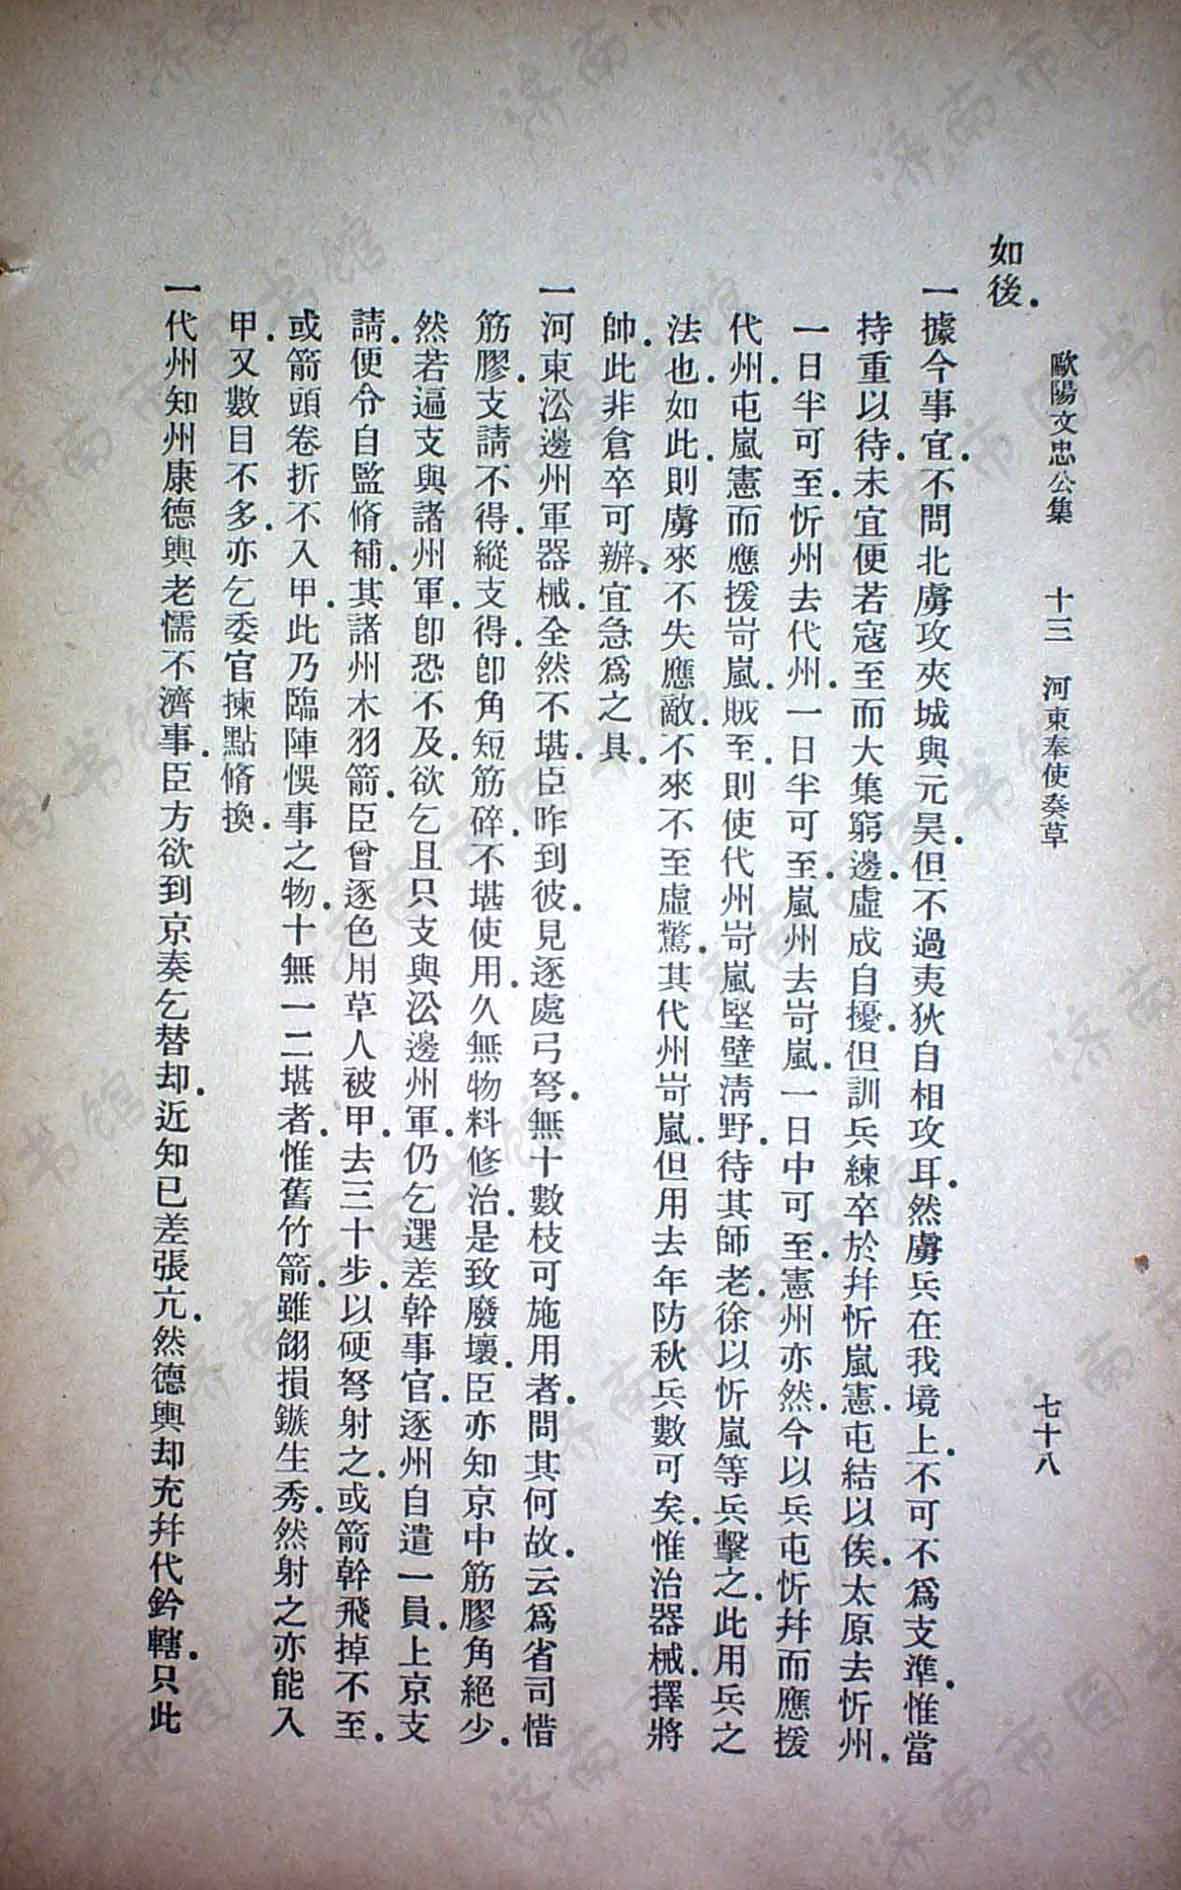 歐陽文忠公集　十三　河東奉使奏草　七十八
如後．
一據今事宜．不問北虜攻夾城與元昊．但不過夷狄自相攻耳．然虜兵在我境上．不可不爲支準．惟當
持重以待．未宜便若寇至而大集窮邊．虛成自擾．但訓兵練卒於幷忻嵐憲．屯結以俟．太原去忻州．
一日半可至．忻州去代州．一日半可至．嵐州去岢嵐．一日中可至．憲州亦然．今以兵屯忻幷而應援
代州．屯嵐憲而應援岢嵐．賊至．則使代州岢嵐堅壁淸野．待其師老．徐以忻嵐等兵擊之．此用兵之
法也．如此．則虜來不失應敵．不來不至虛驚．其代州岢嵐．但用去年防秋兵數可矣．惟治器械．擇將
帥．此非倉卒可辦．宜急爲之具．
一河東㳂邊州軍器械．全然不堪．臣昨到彼．見逐處弓弩．無十數枝可施用者．問其何故．云爲省司惜
筋膠．支請不得．縱支得．卽角短筋碎．不堪使用．久無物料修治．是致廢壞．臣亦知京中筋膠角絕少．
然若遍支與諸州軍．卽恐不及．欲乞且只支與㳂邊州軍．仍乞選差幹事官．逐州自遣一員．上京支
請．便令自監脩補．其諸州木羽箭．臣曾逐色用草人被甲．去三十步．以硬弩射之．或箭幹飛掉不至．
或箭頭卷折不入甲．此乃臨陣悞事之物．十無一二堪者．惟舊竹箭．雖翎損鏃生秀．然射之亦能入
甲．又數目不多．亦乞委官揀點脩換．
一代州知州康德輿老懦不濟事．臣方欲到京奏乞替却．近知已差張亢．然德輿却充幷代鈐轄．只此